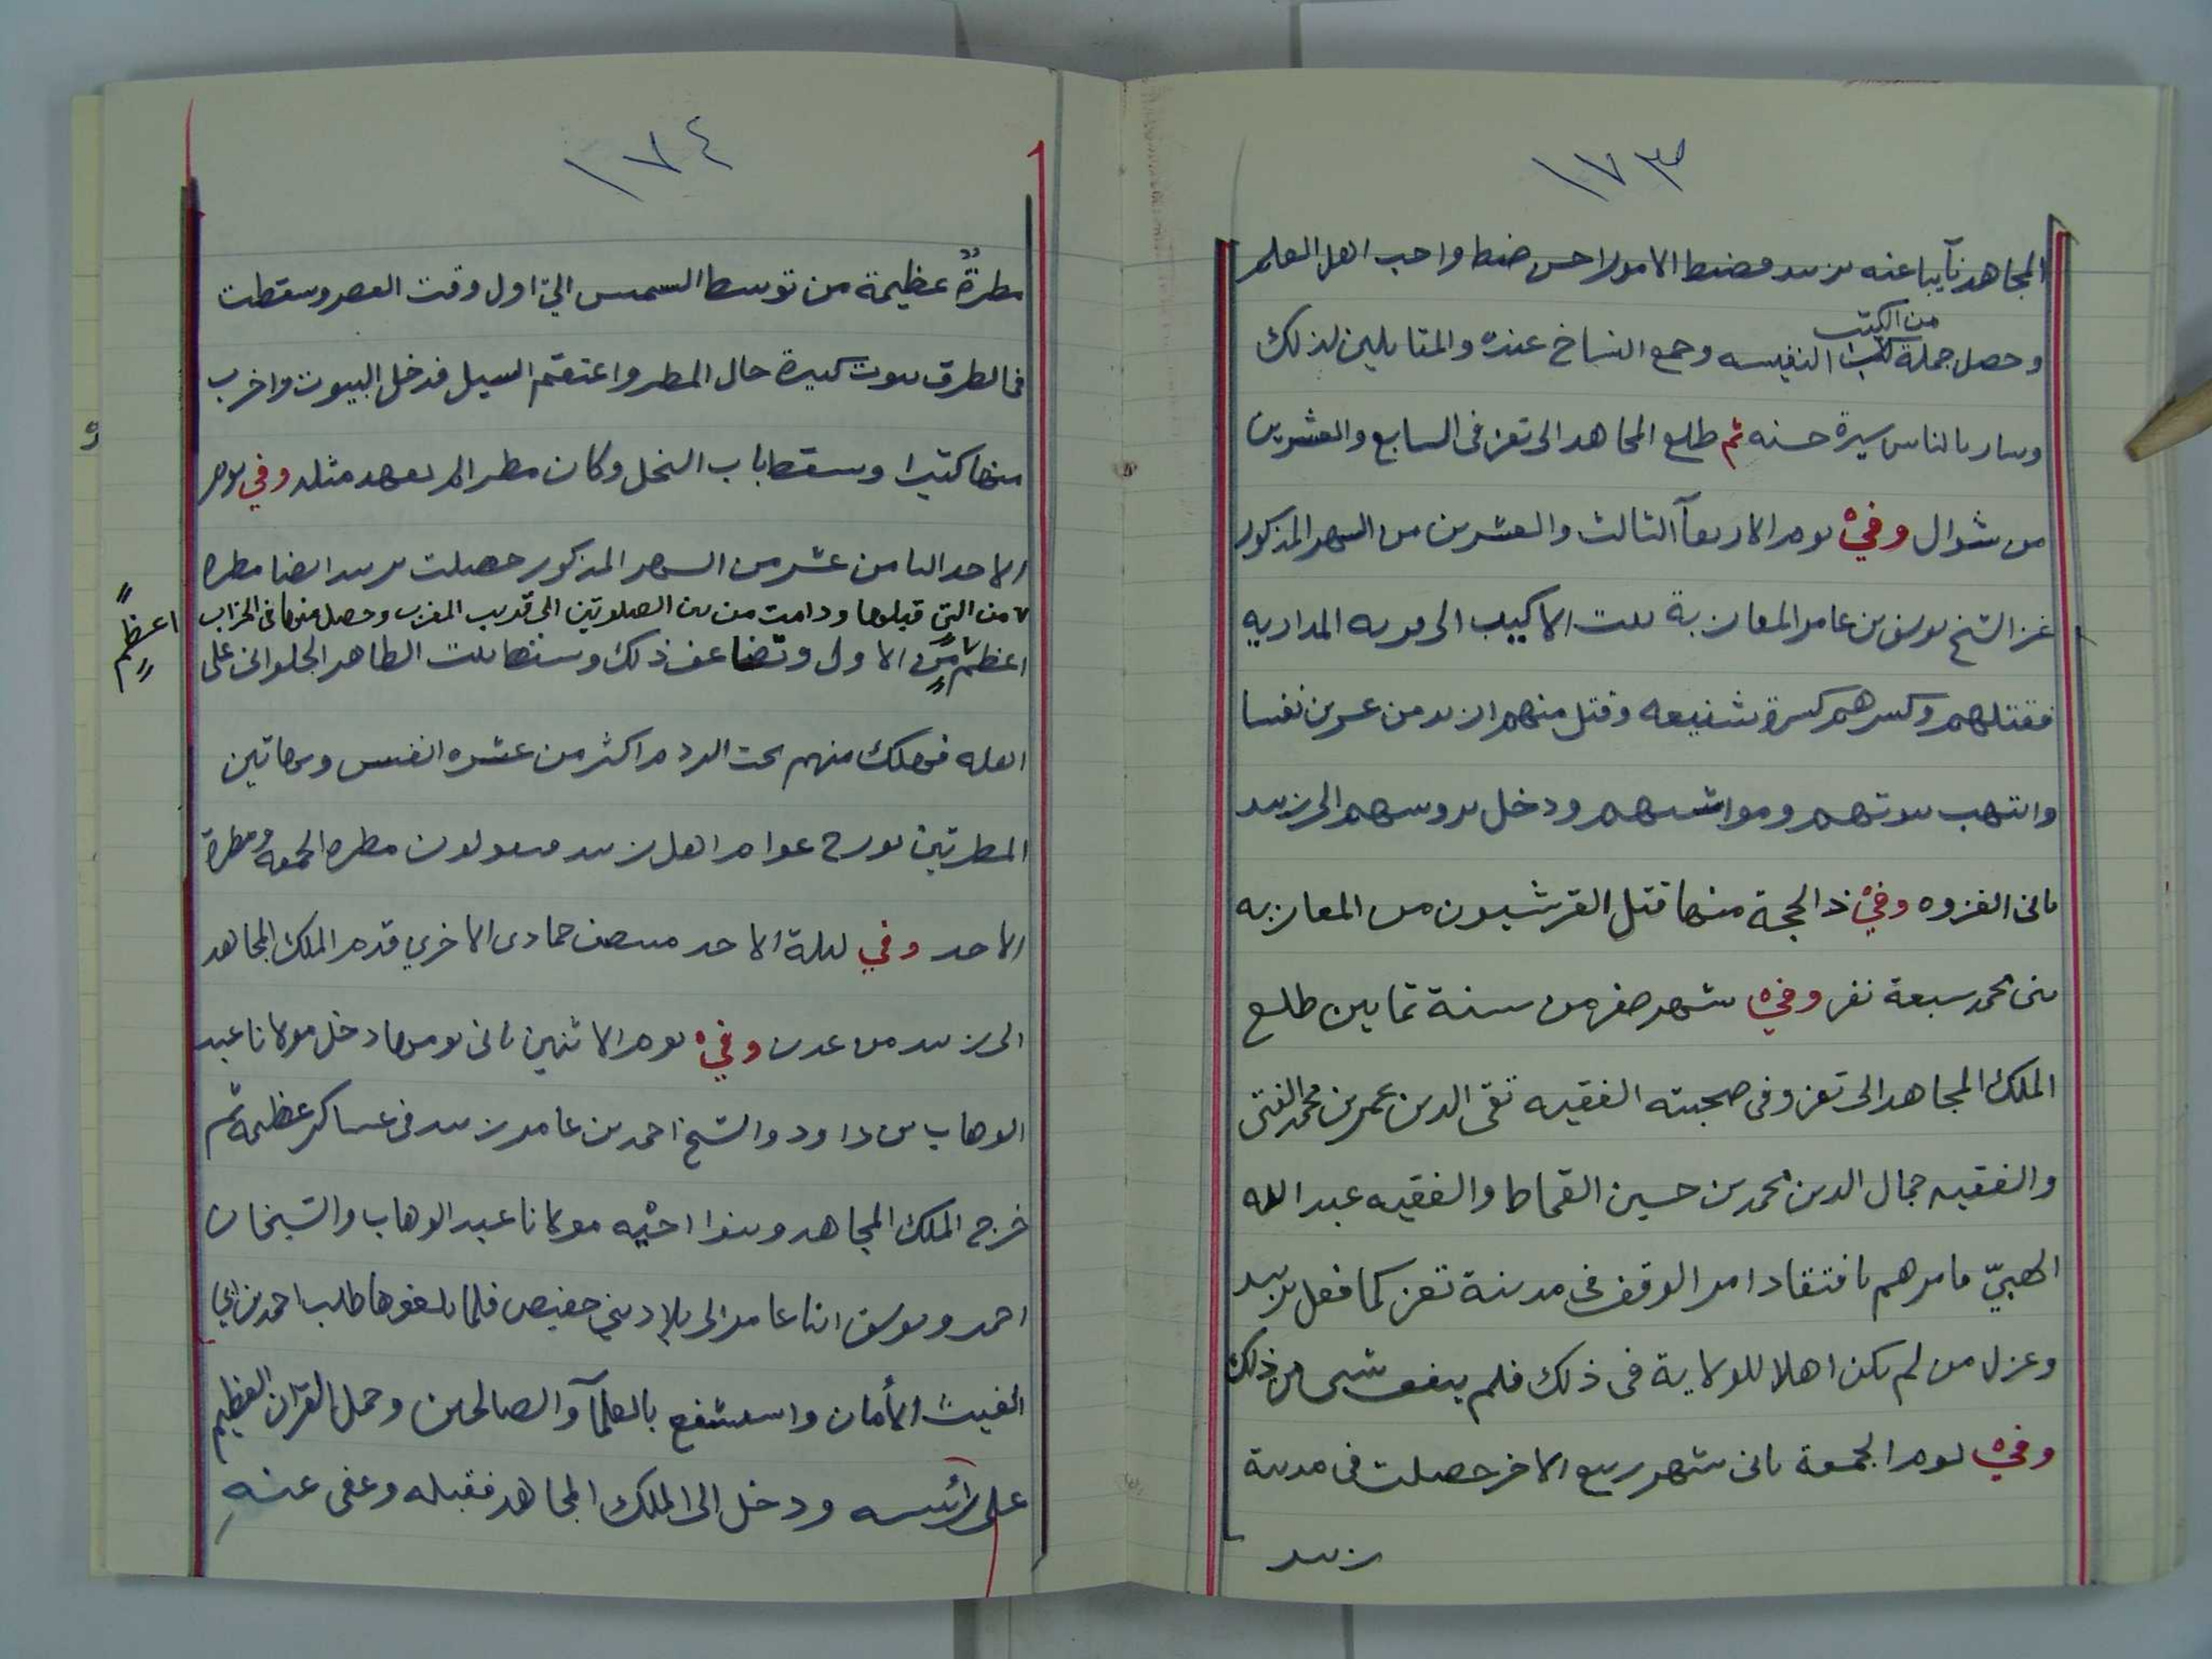 ١٧٣
المجاهد نآيبا عنه بزبيد فضبط الامور احسن ضبط واحب اهل العلم
من الكتب
وحصل جملة النفيسه وجمع النساخ عنده والمقابلين لذلك
وسار بالناس سيرة حسنه ثم طلع المجاهد الى تعز فى السابع والعشرين
من شوال وفي يوم الاربعآ الثالث والعشرين من الشهر المذكور
غزا الشيخ يوسف بن عامر المعازبة الى قريه المداريه
فقتلهم وكسرهم كسرة شنيعه وقتل منهم ازيد من عشرين نفسا
وانتهب بيوتهم ومواشيهم ودخل بروسهم الى زبيد
ثانى الغزوه وفي ذالحجة منها قتل القرشيون من المعازبه
بنى محمد سبعة نفر وفي شهر صفر من سنة ثمانين طلع
الملك المجاهد الى تعز وفى صحبته الفقيه تقى الدين عمر بن محمد الفتى
والفقيه جمال الدين محمد بن حسين القماط والفقيه عبد الله
الهبيّ فامرهم بافتقاد امر الوقف فى مدينة تعز كما فعل بزبيد
وعزل من لم يكن اهلا للولاية فى ذلك فلم يتفق شى من ذلك
وفي يوم الجمعة ثانى شهر ربيع الاخر حصلت فى مدينة
زبيد
١٧٤
مطرةٌ عظيمة من توسط الشمس الى اول وقت العصر وسقطت
فى الطرق بيوت كبيرة حال المطر واعتقم السيل فدخل البيوت واخرب
منها كثيرا وسقط باب النخل وكان مطرا لم يعهد مثله وفي يوم
الاحد الثامن عشر من الشهر المذكور حصلت بزبيد ايضا مطره
من التي قبلها ودامت من بين الصلوتين الى قريب المغرب وحصل منها فى الخراب
اعظم
اعظم من الاول وتضاعف ذلك وسقط بيت الطاهر الجلوانى على
اهله فهلك منهم تحت الردم اكثر من عشره انفس وبهاتين
المطرتين يورخ عوام اهل زبيد فيقولون مطره الجمعه ومطرة
الاحد وفي ليلة الاحد منتصف جمادى الاخري قدم الملك المجاهد
الى زبيد من عدن وفي يوم الاثنين ثانى يومها دخل مولانا عبد
الوهاب بن داود والشيخ احمد بن عامر زبيد فى عساكر عظيمه ثم
خرج الملك المجاهد وبنوا اخيه مولانا عبد الوهاب والشيخان
احمد ويوسف ابنا عامر الى بلاد بني حفيص فلما بلغوها طلب احمد بن ابي
الغيث الأمان واستشفع بالعلمآ والصالحين وحمل القرآن العظيم
على رأسه ودخل الى الملك المجاهد فقبله وعفى عنه